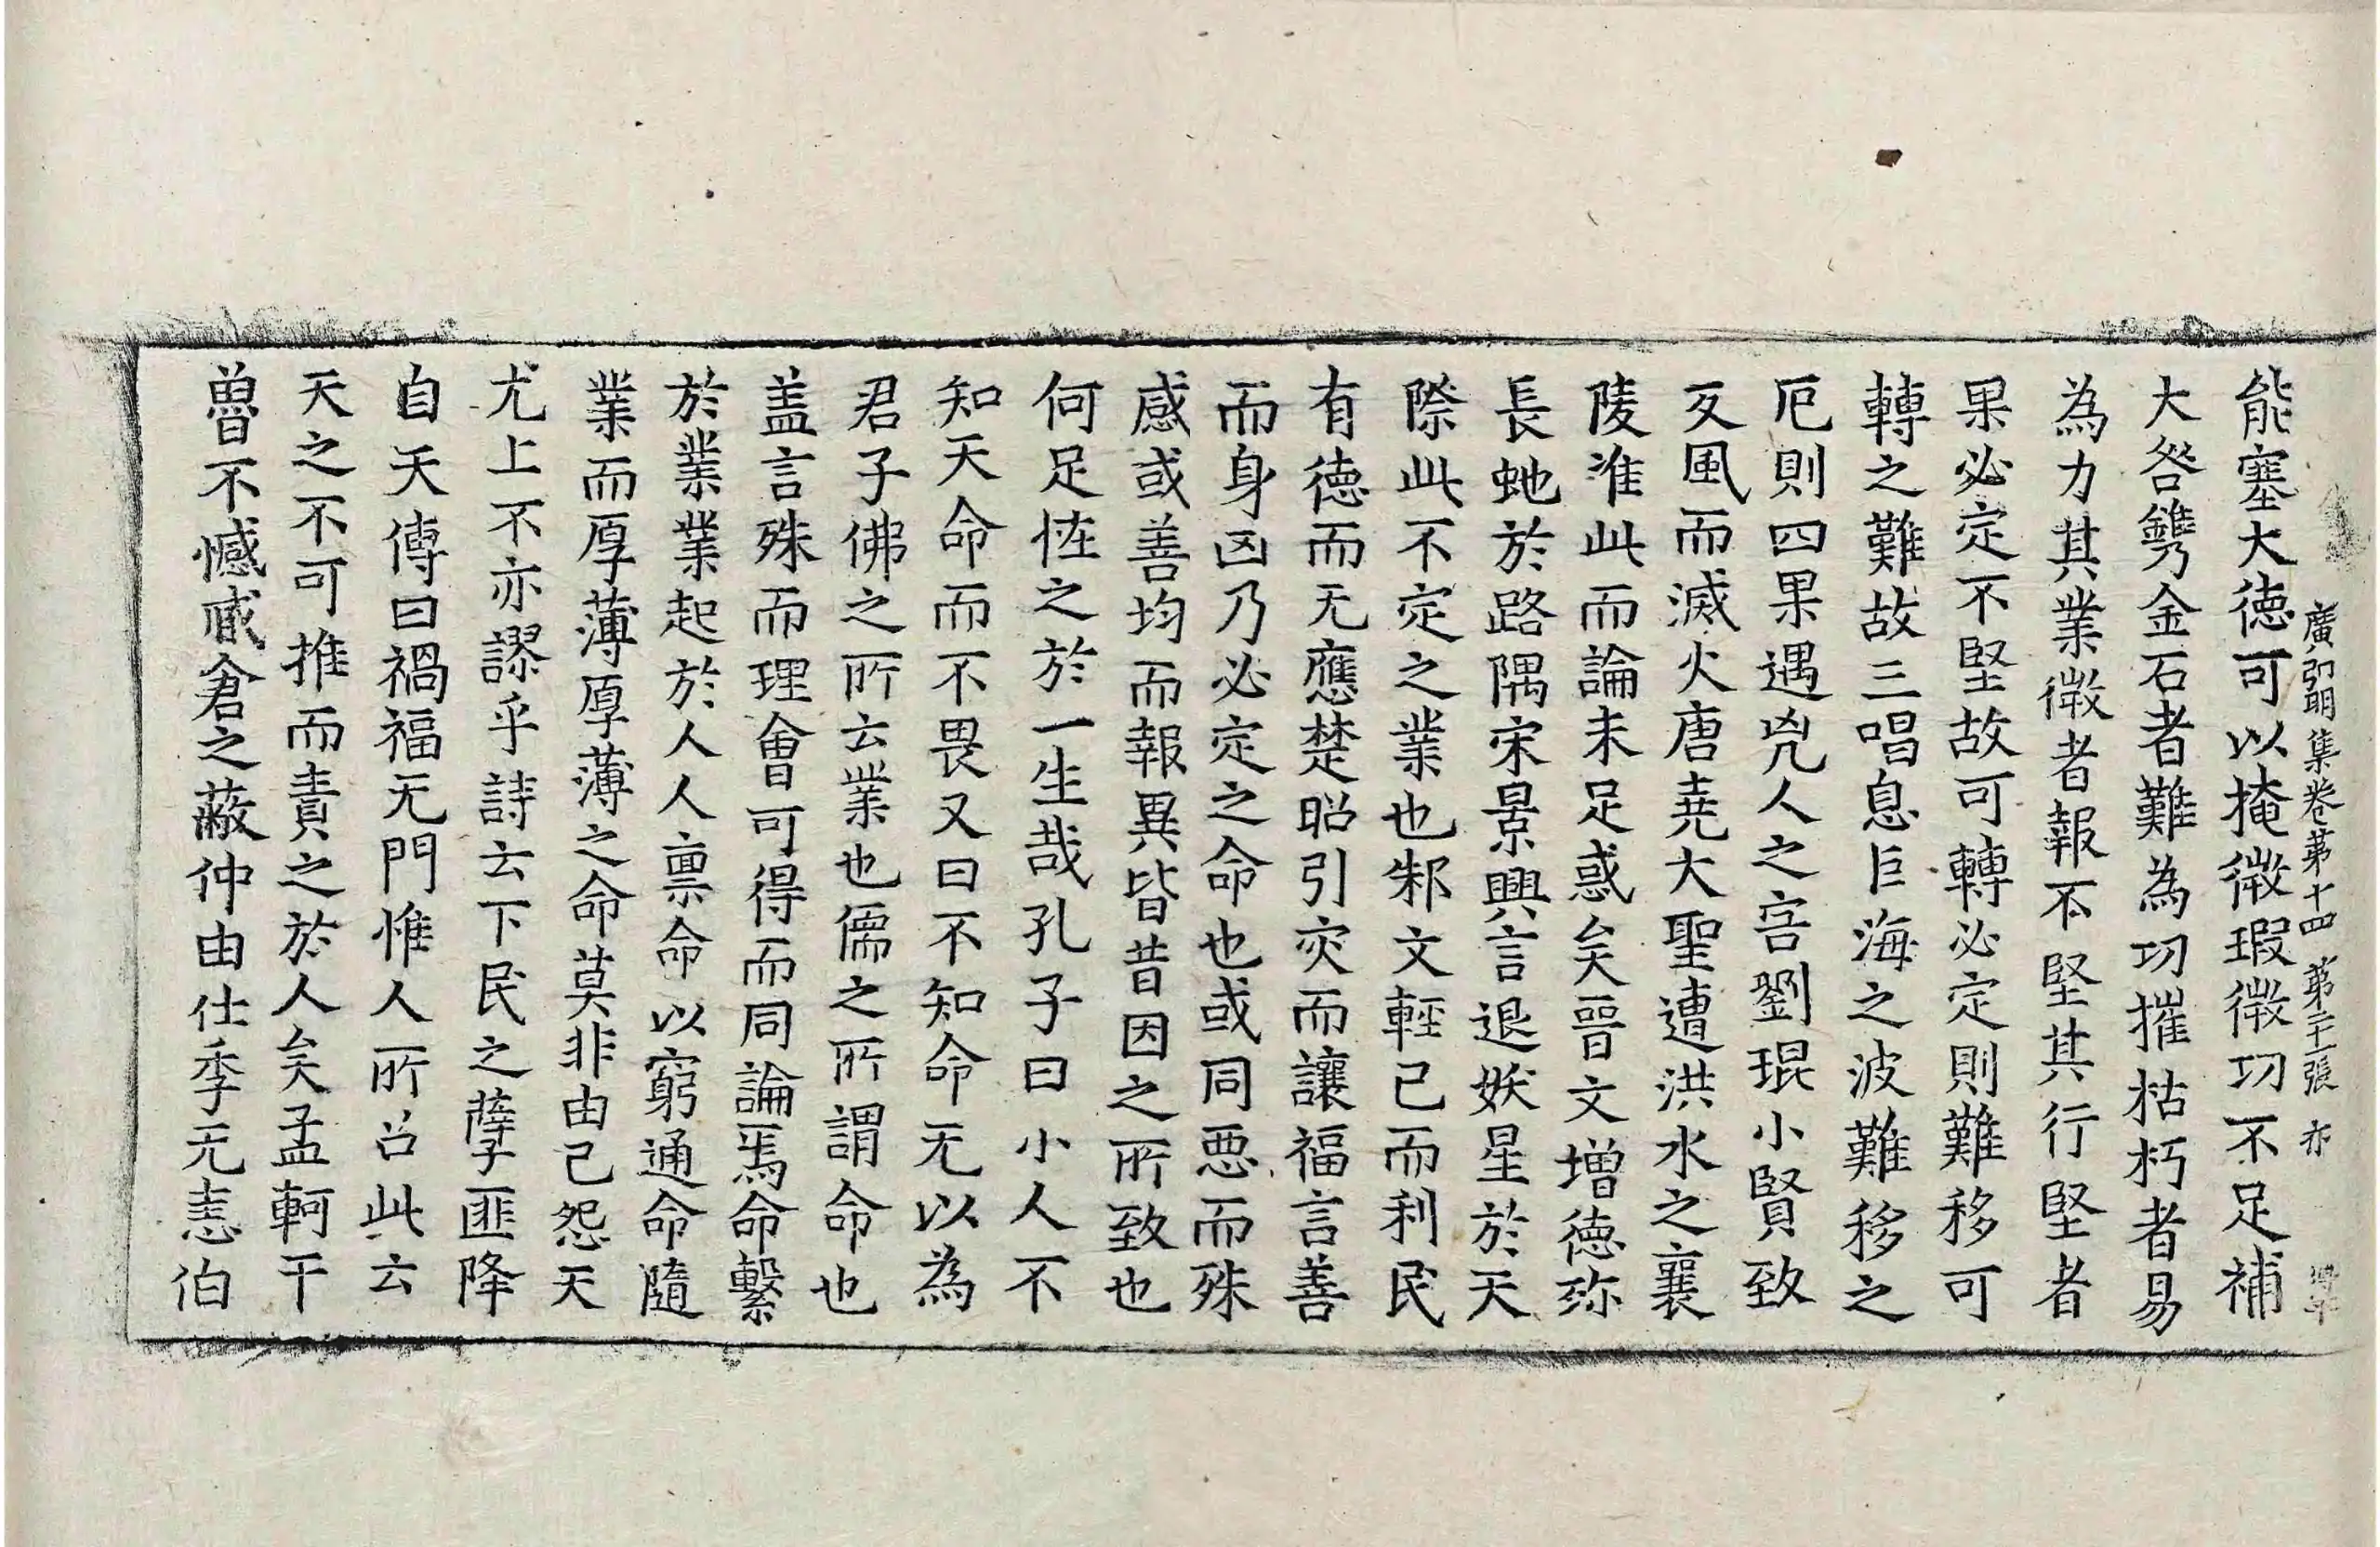 廣弘明集卷第十四 第二十一張 亦
能塞大德可以掩微瑕微功不足補
大咎鐫金石者難為功摧枯朽者易
為力其業微者報不堅其行堅者
果必定不堅故可轉必定則難移可
轉之難故三唱息巨海之波難移之
厄則四果遇兇人之害劉琨小賢致
反風而滅火唐堯大聖遭洪水之襄
陵准此而論未足惑矣晉文增德弥
長虵於路隅宋景興言退妖星於天
際此不定之業也邾文輕己而利民
有德而无應楚昭引灾而讓福言善
而身凶乃必定之命也或同惡而殊
感或善均而報異皆昔因之所致也
何足恠之於一生哉孔子曰小人不
知天命而不畏又曰不知命无以為
君子佛之所云業也儒之所謂命也
盖言殊而理會可得而同論焉命繫
於業業起於人人禀命以窮通命隨
業而厚薄厚薄之命莫非由己怨天
尤上不亦謬乎詩云下民之孽匪降
自天傳曰禍福无門惟人所召此云
天之不可推而責之於人矣孟軻干
魯不憾臧倉之蔽仲由仕季无恚伯